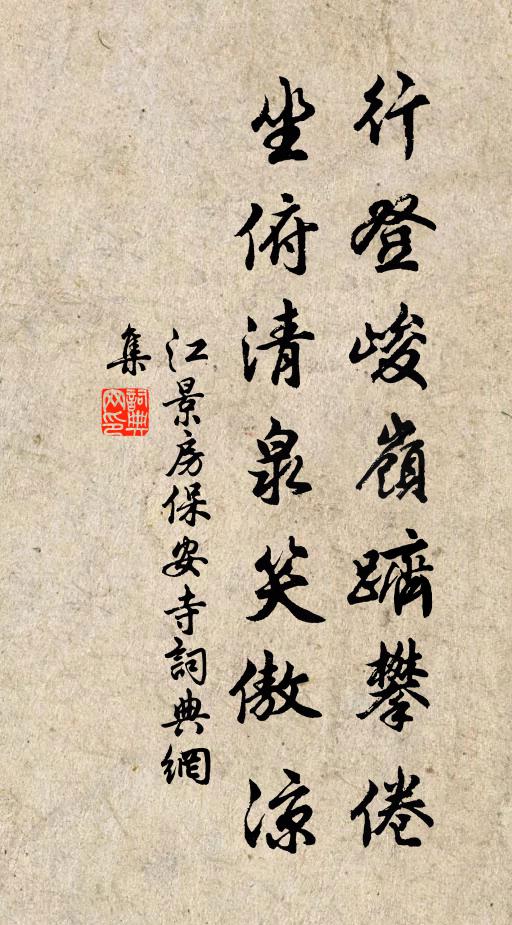 行登峻嶺躋攀倦
坐俯清泉笑傲涼
江景房保安寺詞典網
集
詞典
網印